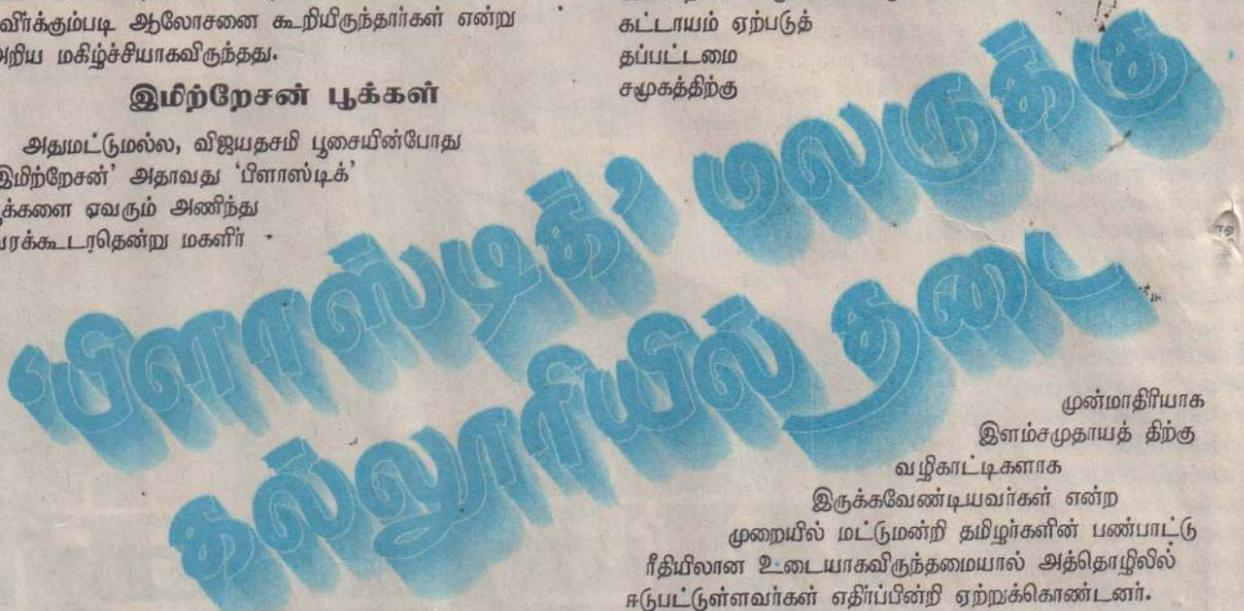 விர்க்கும்படி ஆலோசனை கூறியிருந்தார்கள் என்று
அறிய மகிழ்ச்சியாகவிருந்தது.
இமிற்றேசன் பூக்கள்
அதுமட்டுமல்ல, விஜயதசமி பூசையின்போது
இமிற்றேசன்' அதாவது 'பிளாஸ்டிக்'
க்களை ஏவரும் அணிந்து
வரக்கூடாதென்று மகளிர்
கட்டாயம் ஏற்படுத்
தப்பட்டமை
சமுகத்திற்கு
'பிளாஸ்டிக்' மலருக்கு
கல்லூரியில் தடை
முன்மாதிரியாக
இளம்சமுதாயத் திற்கு
வழிகாட்டிகளாக
இருக்கவேண்டியவர்கள் என்ற
முறையில் மட்டுமன்றி தமிழர்களின் பண்பாட்டு
ரீதியிலான உடையாகவிருந்தமையால் அத்தொழிலில்
ஈடுபட்டுள்ளவர்கள் எதிர்ப்பின்றி ஏற்றுக்கொண்டனர்.